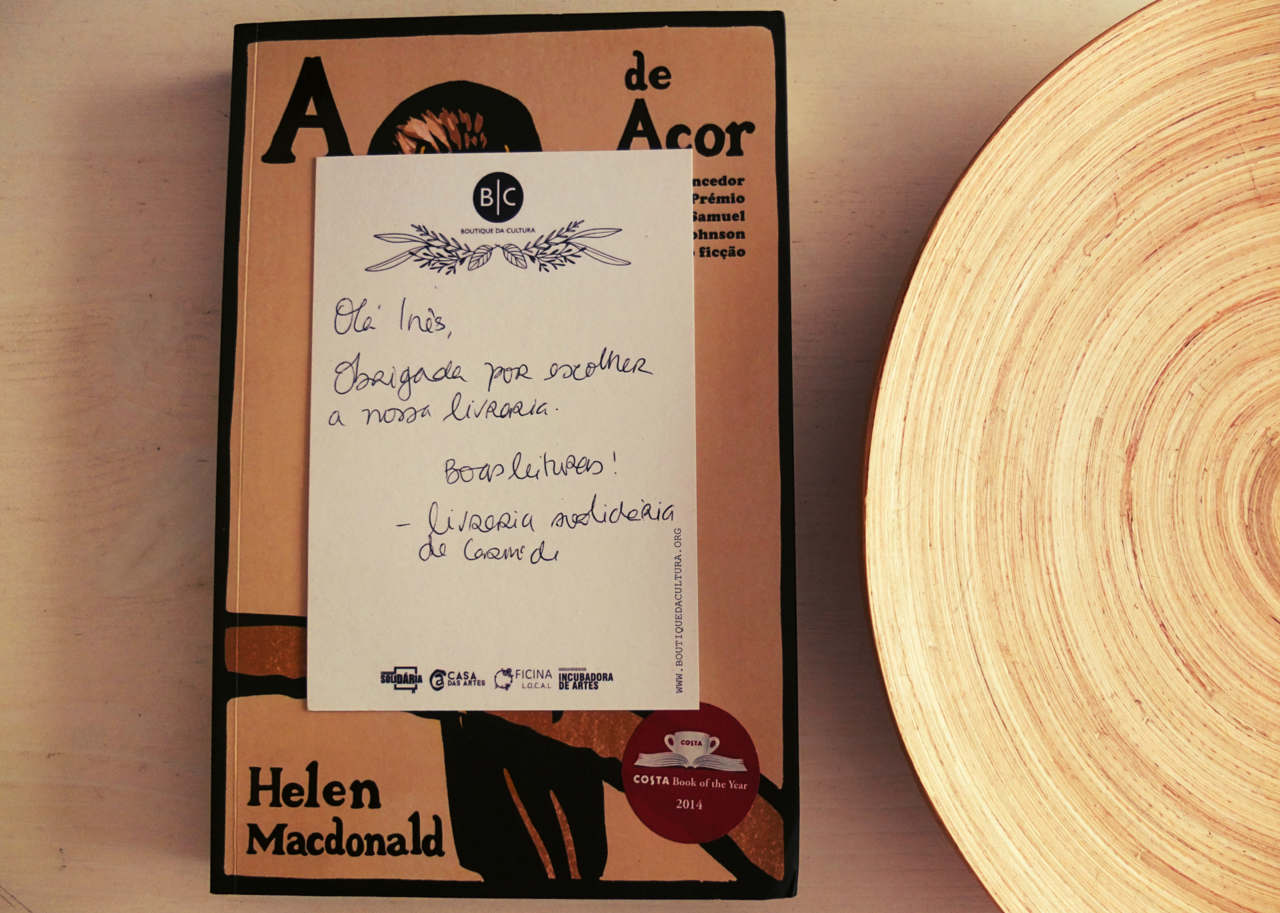 A
de
Acor
ncedor
Prémio
Samuel
ohnson
ficção
B|C
BOUTIQUE DA CULTURA
Olá Inês,
Obrigada por escolher
a nossa livraria.
Boas leituras!
- livraria solidária
de Carnide
WWW.BOUTIQUEDACULTURA.ORG
SOLIDÁRIA
CASA
DAS ARTES
FICINA
L.O.C.A.L
INCUBADORA
DE ARTES
COSTA
COSTA Book of the Year
2014
Helen
Macdonald